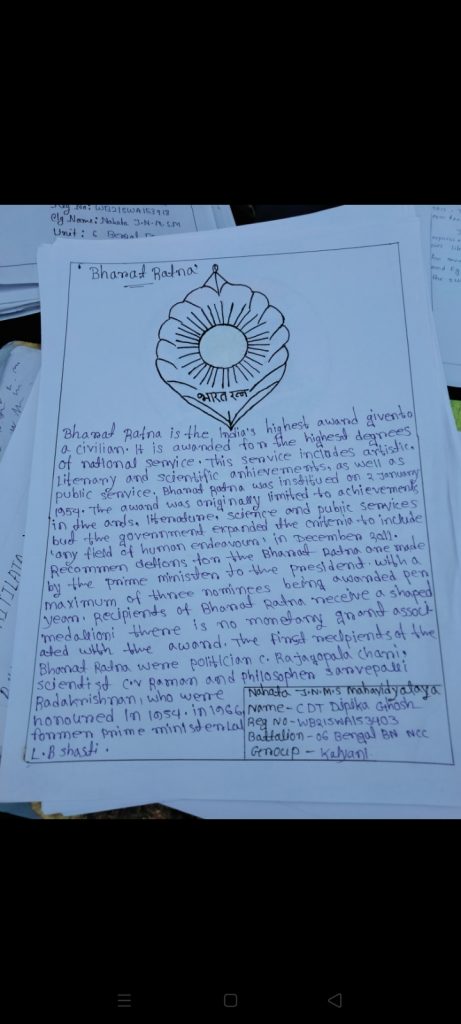 Reg No: WB21SWA153918
Clg Name: Nahata J.N.M.S.M
Unit: 6 Bengal
'Bharat Ratna'
भारत रत्न
Bharat Ratna is the, India's highest award given to
a civilian. It is awarded for the highest degrees
of national service. This service includes artistic,
Literary and scientific anhievements, as well as
public service, Bharat Ratna was institued on 2 January
1954. The award was originally limited to achievements
in the ards, literature, science and public services
bud the government expanded the criteria to include
'any field of human endeavour' in December 2011.
Recommen dations for the Bharat Ratna are made
by the prime minister to the president, with a
maximum of three nominees being awarded per
year. Recipients of Bharat Ratna receive a shaped
medalioni there is no monetary grand assoct
ated with the award. The first recipients of the
Bharat Ratna were politician c. Rajagopala chari,
scientist c.v Raman and philosopher sarvepalli
Radakrishnan, who were
honoured in 1954. in 1966,
former prime minister Lal
L.B shasti.
Nahata - J.N.M.S mahavidyalaya
Name - CDT Dipika Ghosh
Reg No - WB21SWA153403
Battalion - 06 Bengal BN NCC
Group - Kalyani